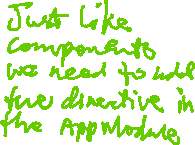 Just like
Components
we need to add
the directive in
the AppModule